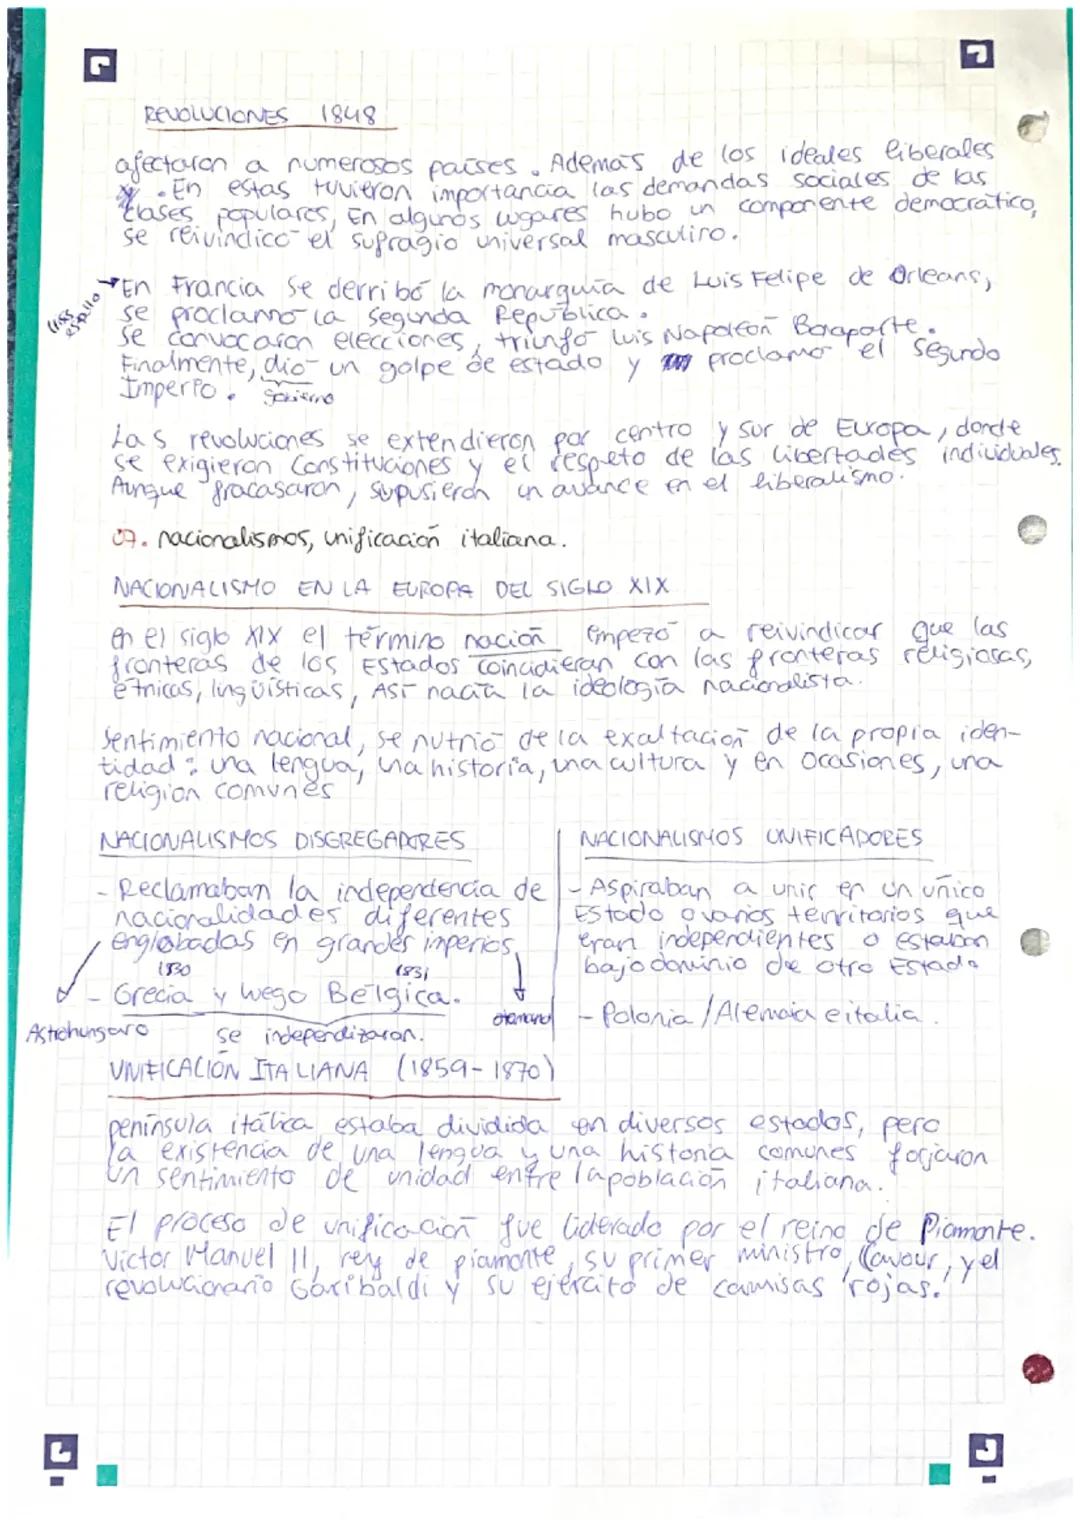 REVOLUCIONES 1848
afectaron a numerosos países. Además de los ideales liberales
. En estas tuvieron importancia las demandas sociales de las
clases populares, En algunos lugares hubo un componente democrático,
se reivindicó el sufragio universal masculino.
En Francia se derribó la monarquía de Luis Felipe de Orleans,
estallo
se proclamó la segunda República.
se convocaron elecciones, triunfó Luis Napoleón Bonaparte.
Finalmente, dio un golpe de estado y proclamo el Segundo
Imperio. gobierno
Las revoluciones se extendieron por centro y sur de Europa, donde
se exigieron Constituciones y el respeto de las libertades individuales.
Aunque fracasaron, supusieron un avance en el liberalismo.
07. nacionalismos, unificación italiana.
NACIONALISMO EN LA EUROPA DEL SIGLO XIX
en el siglo XIX el término nación empezó a reivindicar que las
fronteras de los Estados coincidieran con las fronteras religiosas,
étnicas, lingüísticas, Así nacía la ideología nacionalista.
Sentimiento nacional, se nutrió de la exaltación de la propia iden-
tidad: una lengua, una historia, una cultura y en ocasiones, una
religion comunes
NACIONALISMOS DISGREGADORES
- Reclamaban la independencia de
nacionalidades diferentes
englobadas en grandes imperios,
1830 1831
- Grecia y luego Bélgica.
Astrohungaro otomano
se independizaron.
NACIONALISMOS UNIFICADORES
- Aspiraban a unir en un único
Estado a varios territorios que
eran independientes o estaban
bajo dominio de otro Estado
- Polonia / Alemaia e italia.
UNIFICACIÓN ITALIANA (1859-1870)
península itálica estaba dividida en diversos estados, pero
la existencia de una lengua y una historia comunes forjaron
un sentimiento de unidad entre la población italiana.
El proceso de unificación fue liderado por el reino de Piamonte.
Victor Manuel II, rey de piamonte, su primer ministro, Cavour, y el
revolucionario Garibaldi y su ejército de camisas rojas.